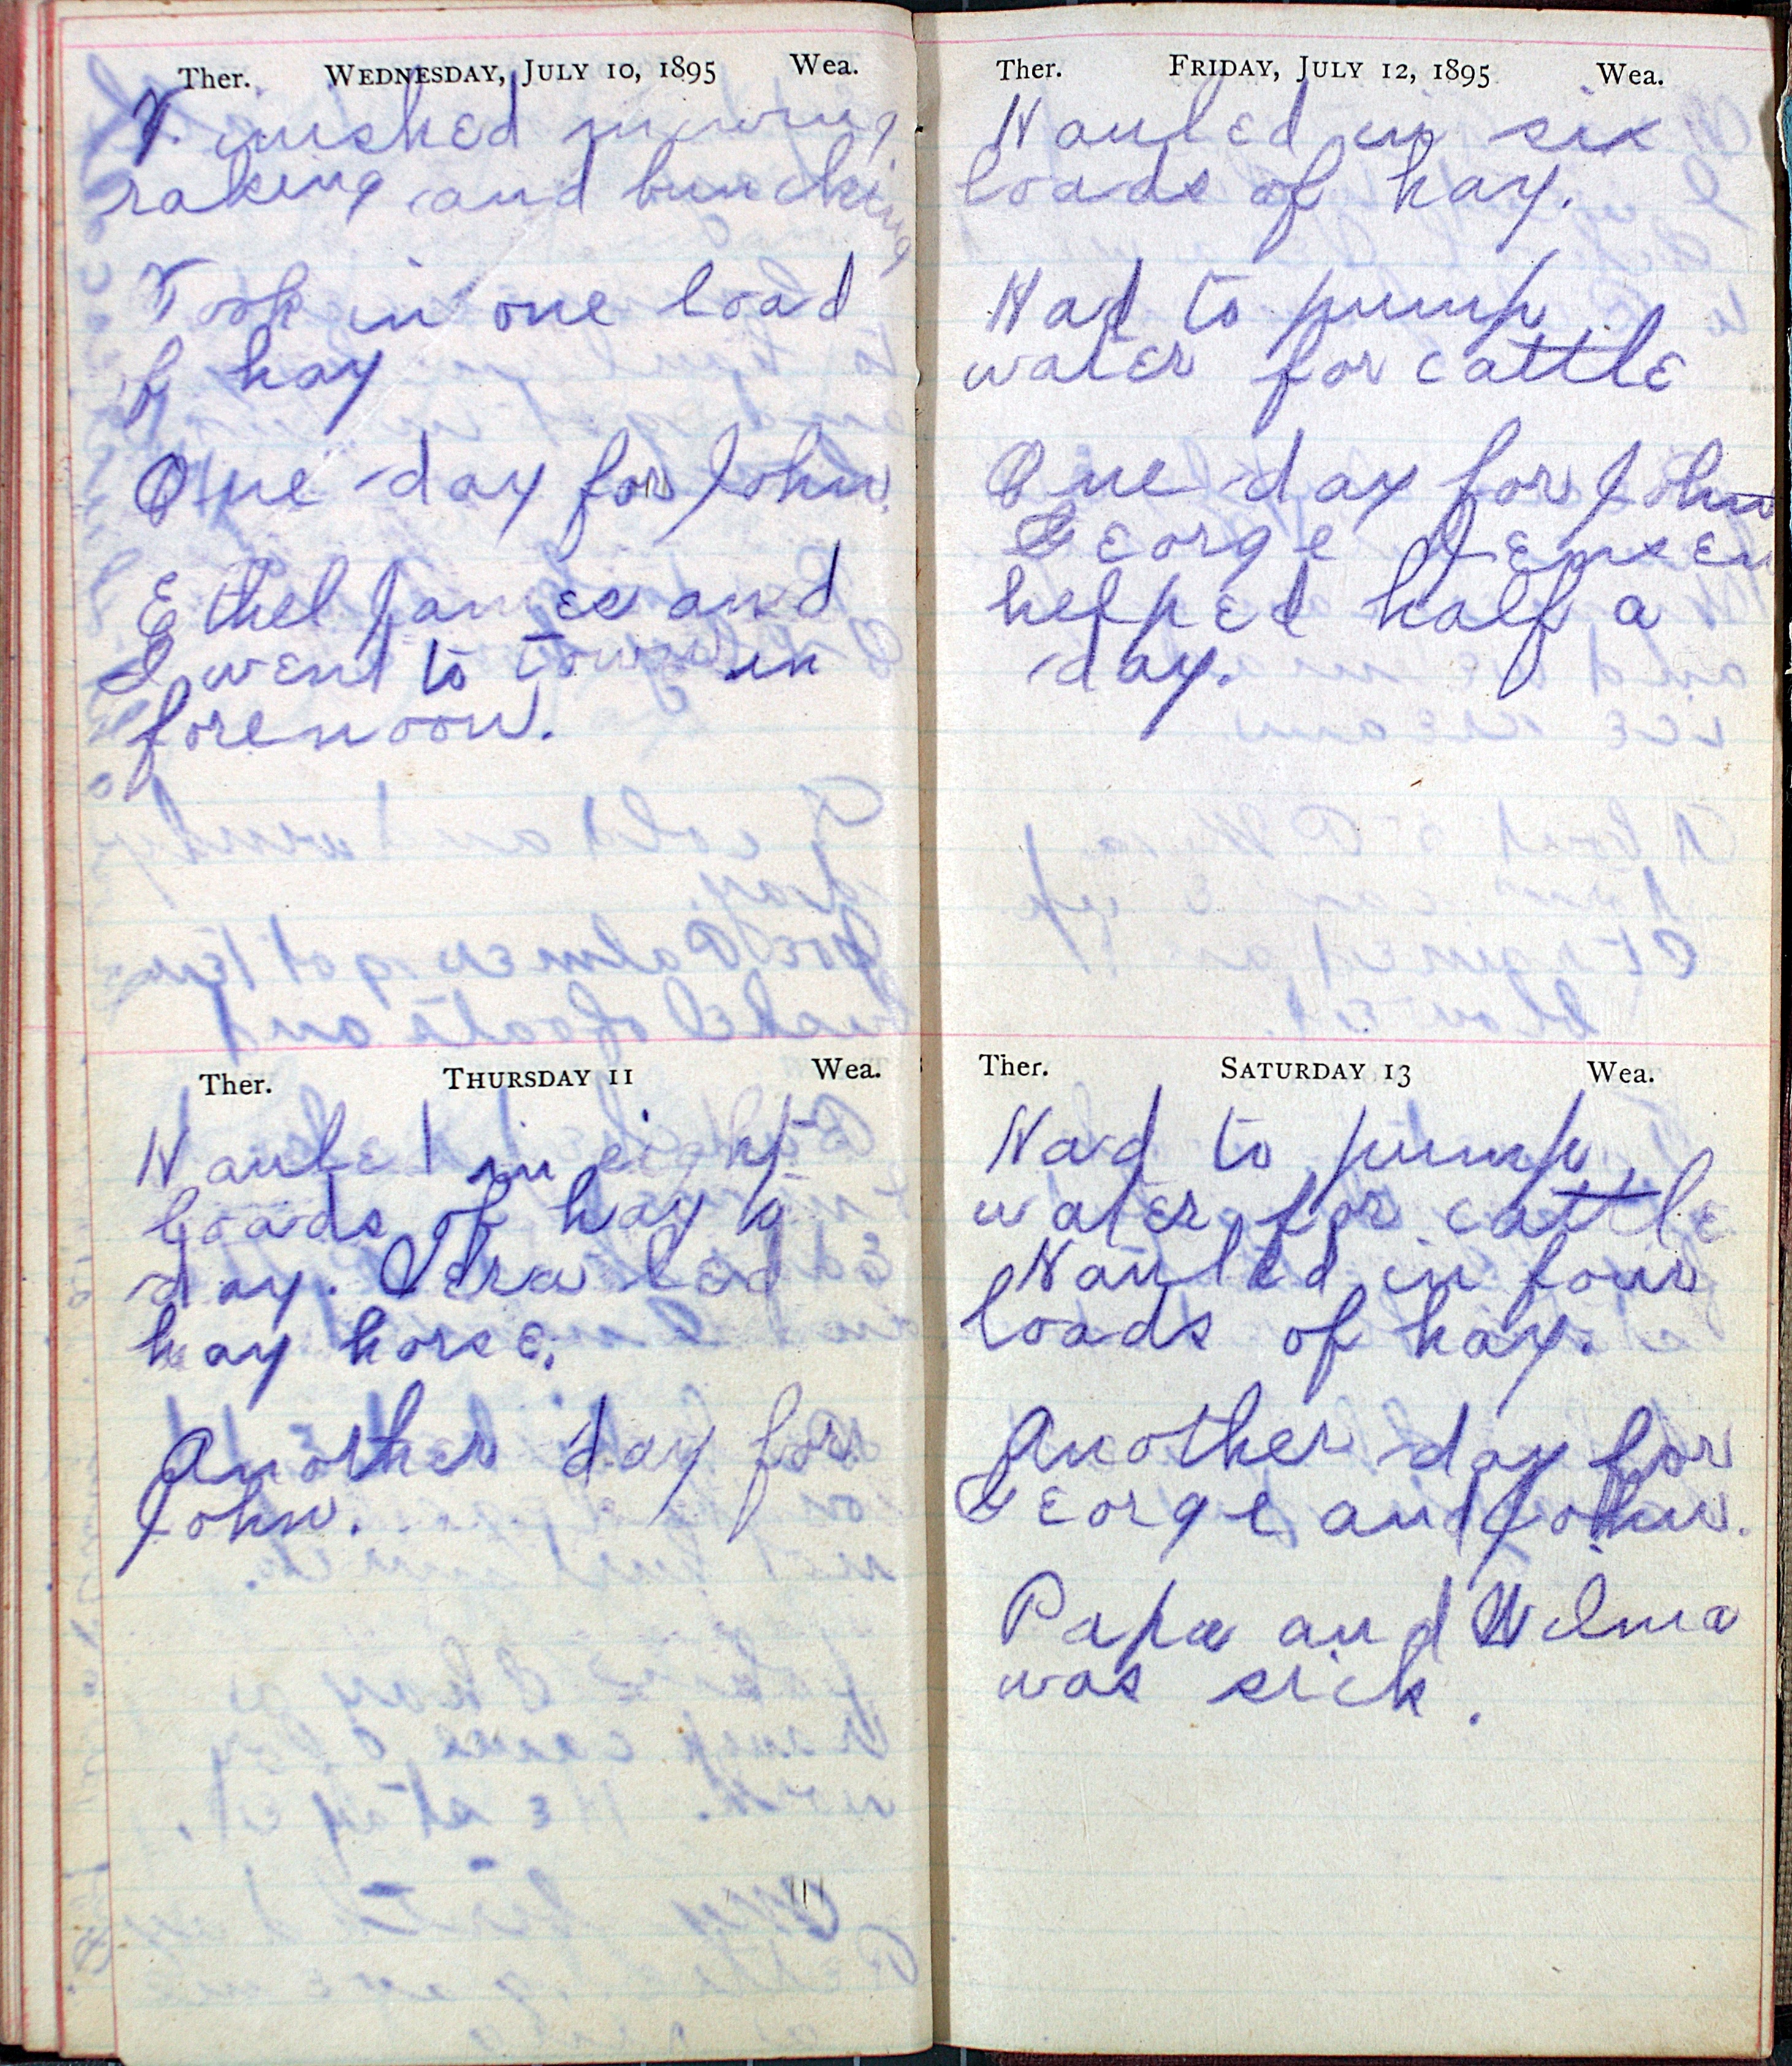 Ther. WEDNESDAY, JULY 10, 1895 Wea.
Finished mowing
raking and bunching
Took in one load
of hay
One day for John.
Ethel James and
I went to town in
forenoon.
Ther. THURSDAY 11 Wea.
Hauled in eight
loads of hay to
day. Vera led
hay horse.
Another day for
John.
Ther. FRIDAY, JULY 12, 1895 Wea.
Hauled in six
loads of hay.
Had to pump
water for cattle
One day for John
George Jensen
helped half a
day.
Ther. SATURDAY 13 Wea.
Had to pump
water for cattle
Hauled in four
loads of hay.
Another day for
George and John.
Papa and Wilma
was sick.